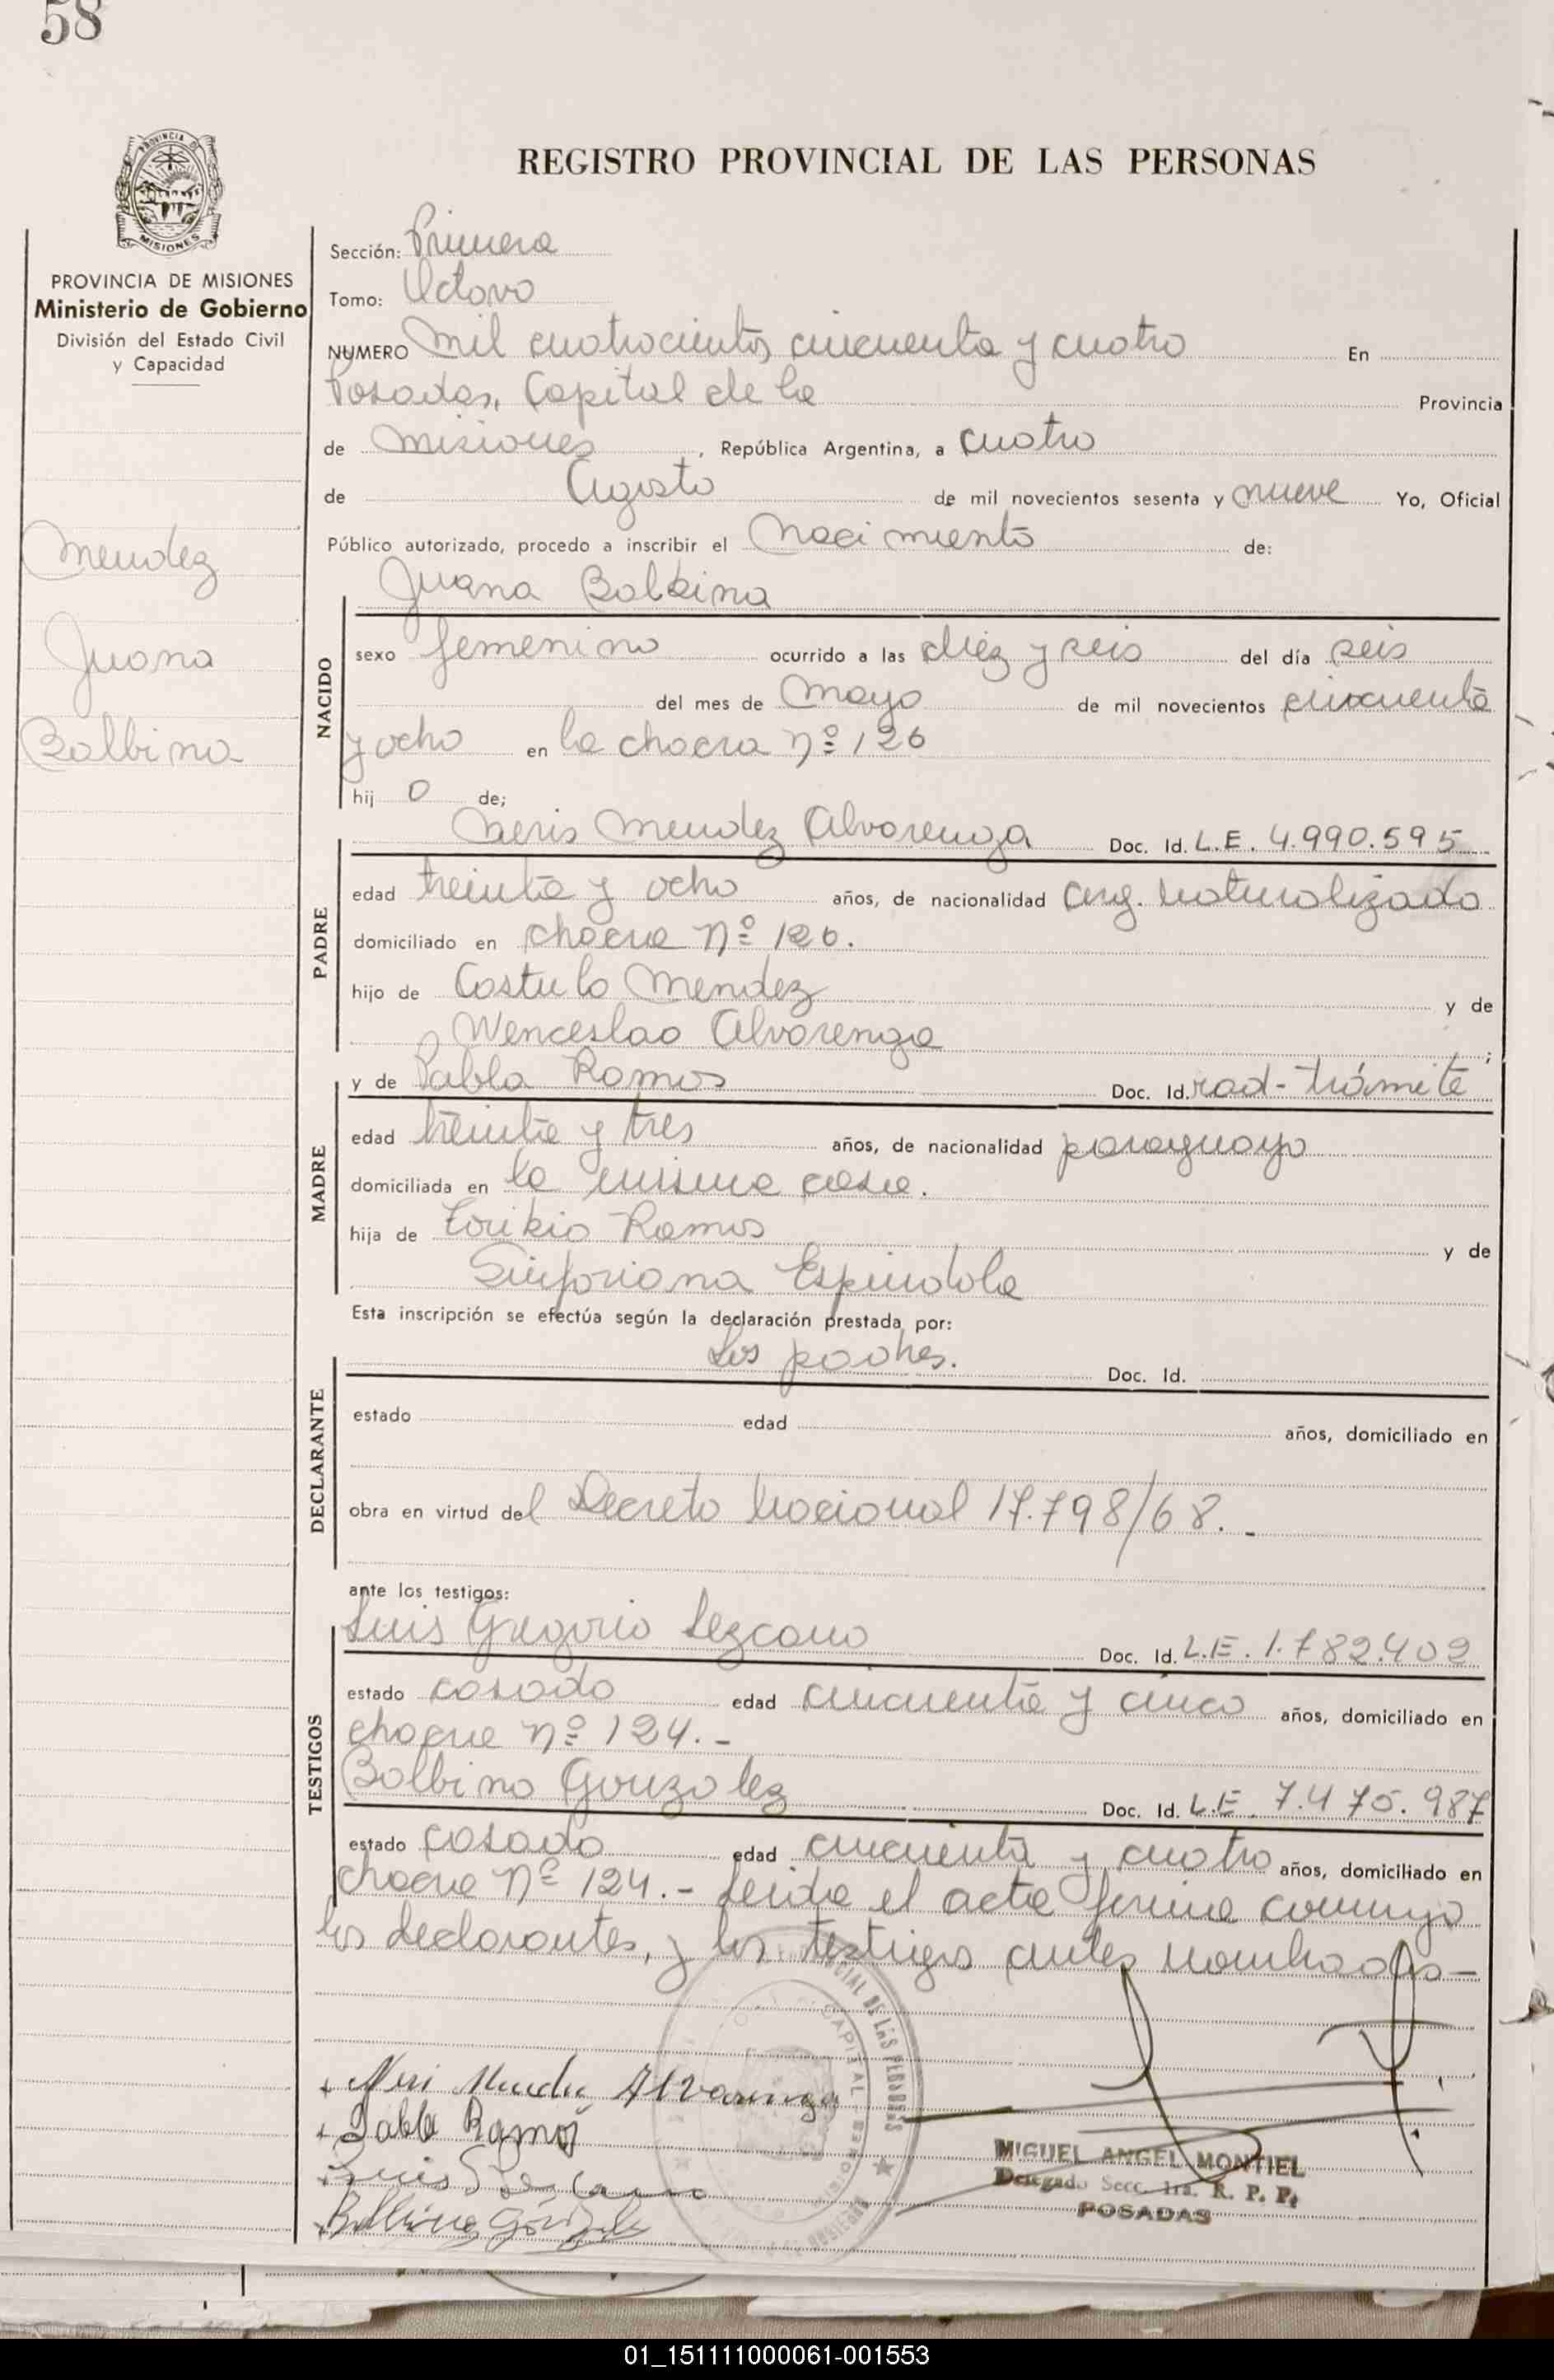 58
REGISTRO PROVINCIAL DE LAS PERSONAS
PROVINCIA DE MISIONES
Ministerio de Gobierno
División del Estado Civil
y Capacidad
Mendez
Juana
Balbina
Sección: Primera
Tomo: Octavo
NUMERO Mil cuatrocientos cincuenta y cuatro En
Posadas, Capital de la Provincia
de Misiones, República Argentina, a cuatro
de Agosto de mil novecientos sesenta y nueve Yo, Oficial
Público autorizado, procedo a inscribir el Nacimiento de:
Juana Balbina
NACIDO
sexo femenino ocurrido a las diez y seis del día seis
del mes de Mayo de mil novecientos cincuenta
y ocho en la chacra Nº 126
hij o de;
Neris Mendez Alvarenga Doc. Id. L.E. 4.990.595
PADRE
edad treinta y ocho años, de nacionalidad Arg. Naturalizado
domiciliado en chacra Nº 126.
hijo de Costulo Mendez y de
Wenceslao Alvarenga;
MADRE
y de Pabla Ramos Doc. Id. rad-trámite
edad treinta y tres años, de nacionalidad paraguaya
domiciliada en la misma casa.
hija de Toribio Ramos y de
Sinforiana Espindola
Esta inscripción se efectúa según la declaración prestada por:
Los padres. Doc. Id.
DECLARANTE
estado edad años, domiciliado en
obra en virtud del Decreto Nacional 17.798/68.-
ante los testigos:
Luis Gregorio Lezcano Doc. Id. L.E. 1.782.402
TESTIGOS
estado casado edad cincuenta y cinco años, domiciliado en
chacra Nº 124.-
Balbino Gonzalez Doc. Id. L.E. 7.475.987
estado casado edad cincuenta y cuatro años, domiciliado en
chacra Nº 124.- Leida el acta firma conmigo
los declarantes, y los testigos antes nombrados-
Neri Mendez Alvarenga
Pabla Ramos
Luis G Lezcano
Balbino González
MIGUEL ANGEL MONTIEL
Delegado Secc. 1ra. R. P. P.
POSADAS
01_151111000061-001553